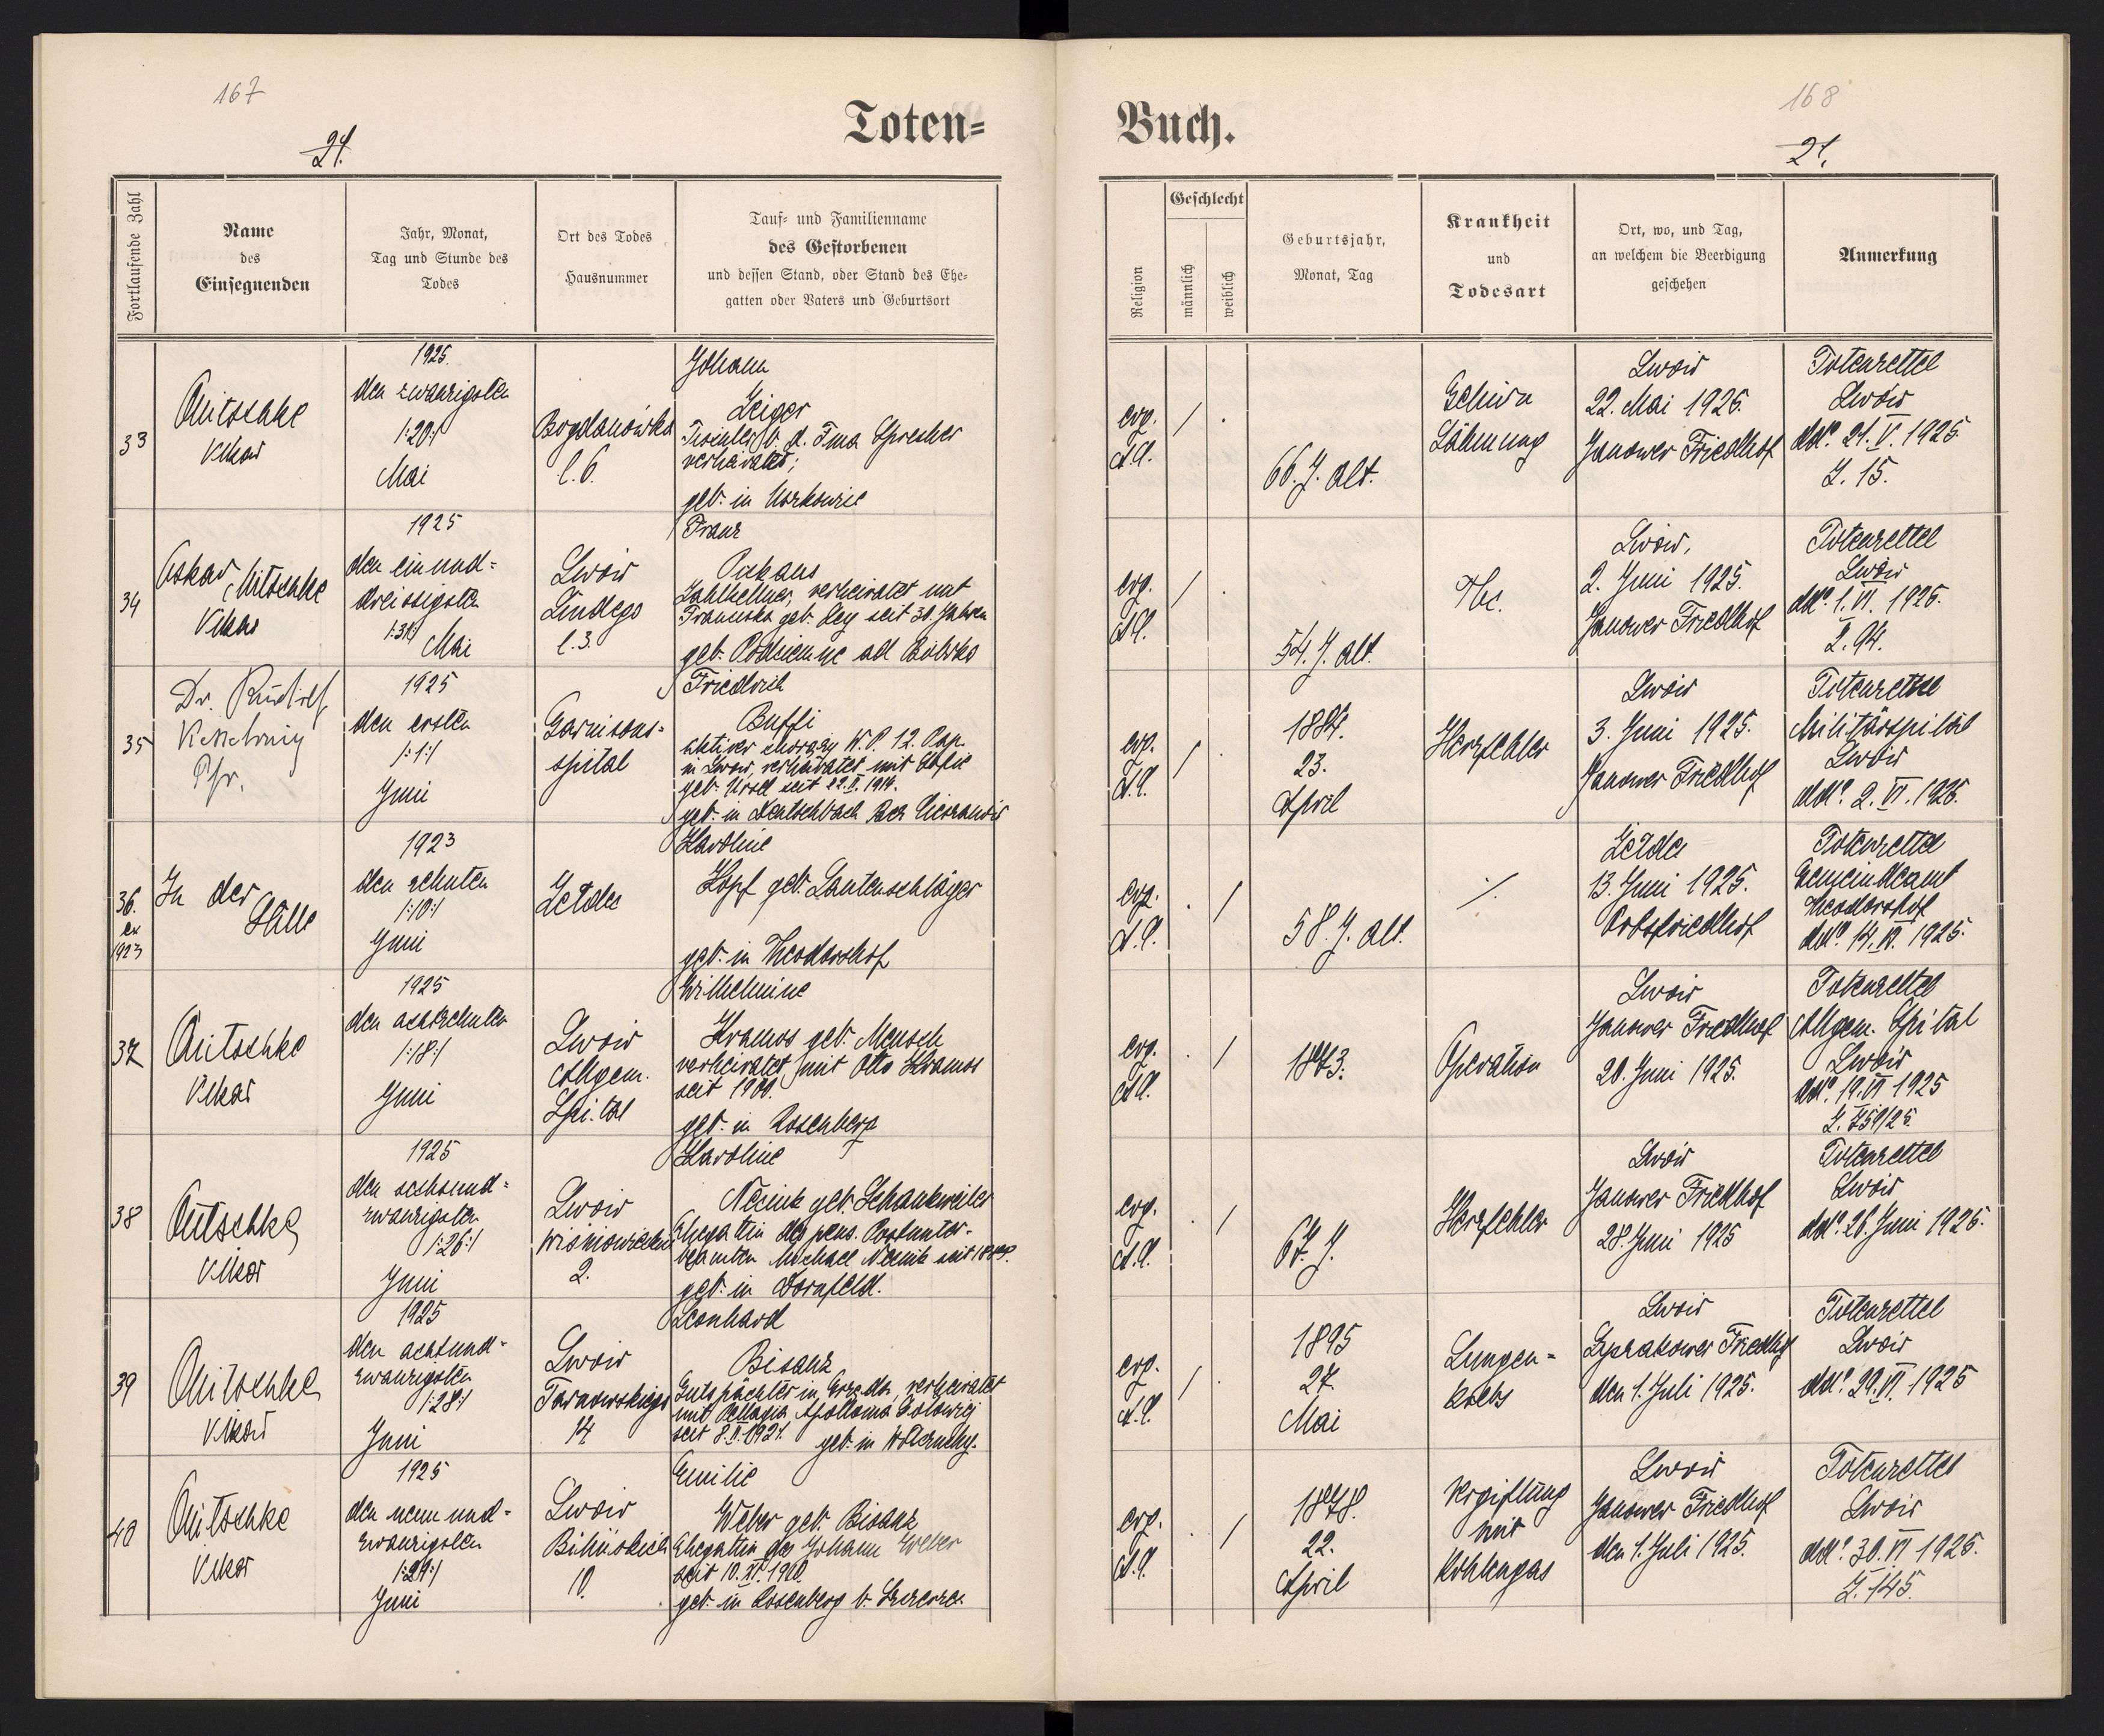 167
21.
Toten=
Fortlaufende Zahl
Name
des
Einsegnenden
Jahr, Monat,
Tag und Stunde des
Todes
Ort des Todes
Hausnummer
Tauf= und Familienname
des Gestorbenen
und dessen Stand, oder Stand des Ehe=
gatten oder Vaters und Geburtsort
33
Mitschke
Vikar
1925.
den zwanzigsten
/:20:/
Mai
Bogdanówka
l. 6.
Johann
Geiger
verheiratet;
geb. in
34
Oskar Mitschke
Vikar
1925
den einund=
dreissigsten
/:31:/ Mai
Lwów
Lindego
l. 3.
Franz
Zahlkellner, verheiratet mit
Franziska geb. Rey seit 30. Jahren
geb.
35
Dr. Rudolf
Kesselring
Pfr.
1925
den ersten
/:1:/
Juni
Garnisons=
spital
Friedrich
Buffi
aktiver
in Lwów, verheiratet mit Sofie
seit 22.II.1914.
geb. in Deutschbach
36.
ex
1923
In der
Stille
1923
den zehnten
/:10:/
Juni
Zełdec
Karoline
Kopf geb. Lautenschläger
geb. in Theodorshof
37
Mitschke
Vikar
1925
den achtzehnten
/:18:/
Juni
Lwów
Allgem.
Spital
Wilhelmine
Kramos geb. Mensch
verheiratet mit Otto Kramos
seit 1900.
geb. in Rosenberg
38
Mitschke
Vikar
1925
den sechsund=
zwanzigsten
/:26:/
Juni
Lwów
2.
Karoline
geb. Schankweiler
Ehegattin des pens. Postunter=
beamten Michael
geb. in Dornfeld.
39
Mitschke
Vikar
1925
den achtund=
zwanzigsten
/:28:/
Juni
Lwów
Tarnowskiego
14
Leonhard
Bisanz
Gutspächter in Grzęda, verheiratet
mit Pelagia Apollonia
seit 8.II.1921. geb. in
40
Mitschke
Vikar
1925
den neunund=
zwanzigsten
/:29:/
Juni
Lwów
10.
Emilie
Weber geb. Bisanz
Ehegattin des Johann Weber
seit 10.XI.1900.
geb. in Rosenberg b. Szczerzec
168
21.
Buch.
Religion
Geschlecht
männlich
weiblich
Geburtsjahr,
Monat, Tag
Krankheit
und
Todesart
Ort, wo, und Tag,
an welchem die Beerdigung
geschehen
Anmerkung
evg.
A.C.
/ .
66. J. alt.
Gehirn
Lähmung
Lwów
22. Mai 1925.
Janower Friedhof
Totenzettel
Lwów
ddto. 21.V.1925.
Z. 15.
evg.
A.C.
/ .
54. J. alt.
Tbc.
Lwów,
2. Juni 1925.
Janower Friedhof
Totenzettel
Lwów
ddto. 1.VI.1925.
Z. 94.
evg.
A.C.
/ .
1884.
23.
April
Herzfehler
Lwów
3. Juni 1925.
Janower Friedhof
Totenzettel
Militärspital
Lwów
ddto. 2.VI.1925.
evg.
A.C.
. /
58. J. alt.
./.
Zełdec
13. Juni 1925.
Ortsfriedhof
Totenzettel
Gemeindeamt
Theodorshof
ddto. 14.VI.1925.
evg.
A.C.
. /
1873.
Operation
Lwów
Janower Friedhof
20. Juni 1925.
Totenzettel
Allgem. Spital
Lwów
ddto. 19.VI.1925
Z. 759/25.
evg.
A.C.
. /
67. J.
Herzfehler
Lwów
Janower Friedhof
28. Juni 1925
Totenzettel
Lwów
ddto. 26. Juni 1925.
evg.
A.C.
/ .
1895
27.
Mai
Lungen=
krebs
Lwów
Łyczakower Friedhof
den 1. Juli 1925.
Totenzettel
Lwów
ddto. 29.VI.1925
evg.
A.C.
. /
1878.
22.
April
Vergiftung
mit
Kohlengas
Lwów
Janower Friedhof
den 1. Juli 1925.
Totenzettel
Lwów
ddto. 30.VI.1925.
Z. 145.